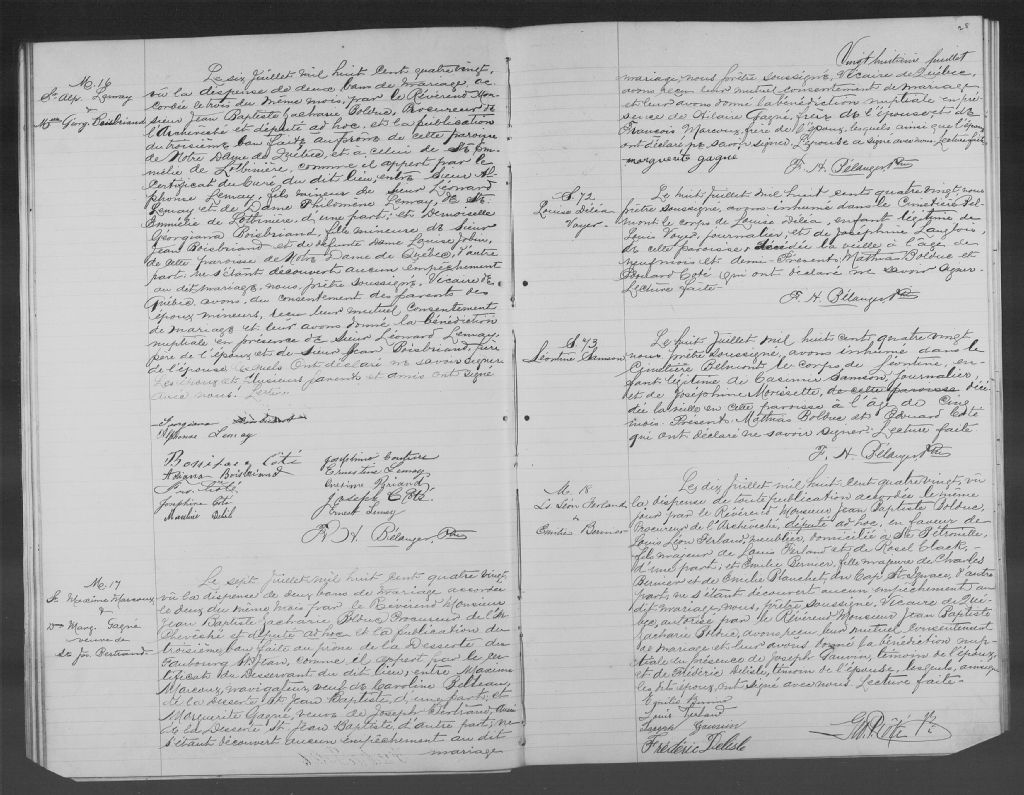 M. 16
St. Alp. Lemay
&
Mlle Georg. Boisbriand
Le six Juillet mil huit cent quatre vingt,
vû la dispense de deux bans de mariage ac
cordée le trois du même mois, par le Révérend Mon
sieur Jean Baptiste Zacharie Bolduc, Procureur de
l'Archevêché et député ad hoc, et la publication
du troisième ban faite au prône de cette paroisse
de Notre Dame de Québec, et à celui de Ste Em
mélie de Lotbinière, comme il appert par le
Certificat du Curé, du dit lieu, entre Sieur Al
phonse Lemay, fils mineur de Sieur Léonard
Lemay et de Dame Philomène Lemay, de Ste
Emmélie de Lotbinière, d'une part; et Demoiselle
Georgiana Boisbriand, fille mineure de Sieur
Jean Boisbriand et de défunte Dame Louise Jobin,
de cette paroisse de Notre Dame de Québec, d'autre
part; ne s'étant découvert aucun empêchement
au dit mariage, nous, prêtre soussigné, Vicaire de
Québec, avons, du consentement des parents des
époux mineurs, reçu leur mutuel consentement
de mariage et leur avons donné la bénédiction
nuptiale en présence de Sieur Léonard Lemay,
père de l'époux, et de Sieur Jean Boisbriand, père
de l'épouse lesquels ont déclaré ne savoir signer
Les époux et plusieurs parents et amis ont signé
avec nous. Lecture
Georgiana Boisbriand
Alphonse Lemay
Côté
Boisbriand
Joséphine Côté
Ernestine Lemay
Briand
Joseph Côté
Ernest Lemay
F. H. Bélanger Ptre
M. 17
St. Maxime Marcoux
&
Dme Marg. Gagné
veuve de
St. Jos. Bertrand
Le sept Juillet mil huit cent quatre vingt,
vû la dispense de deux bans de mariage accordée
le deux du même mois par le Révérend Monsieur
Jean Baptiste Zacharie Bolduc Procureur de l'Ar
chevêché et député ad hoc et la publication du
troisième ban faite au prône de la Desserte du
Faubourg St Jean, comme il appert par le cer
tificat du Desservant du dit lieu; entre Maxime
Marcoux, navigateur, veuf de Caroline
de la Desserte St Jean Baptiste, d'une part, et
Marguerite Gagné, veuve de Joseph Bertrand, aussi
de la Desserte St Jean Baptiste, d'autre part; ne
s'étant découvert aucun empêchement au dit
mariage
28
Vingt huitième feuillet
mariage, nous, prêtre soussigné, Vicaire de Québec,
avons reçu leur mutuel consentement de mariage
et leur avons donné la bénédiction nuptiale en pré
sence de Hilaire Gagné, frère de l'épouse et de
François Marcoux, frère de l'époux, lesquels, ainsi que l'époux
ont déclaré ne savoir signer. L'épouse a signé avec nous. Lecture faite
marguerite gagné
F. H. Bélanger Ptre
S. 72
Louise Délia
Voyer
Le huit Juillet mil huit cent quatre vingt, nous
prêtre soussigné, avons inhumé dans le Cimetière Bel
mont, le corps de Louise Délia, enfant légitime de
Louis Voyer, journalier, et de Joséphine Langlois,
de cette paroisse, décédée la veille à l'âge de
neuf mois et demi. Présents Mathias Bolduc et
Edouard Coté qui ont déclaré ne savoir signer.
Lecture faite
F. H. Bélanger Ptre
S. 73
Léontine Samson
Le huit Juillet mil huit cent quatre vingt
nous prêtre soussigné, avons inhumé dans le
Cimetière Belmont le corps de Léontine, en
fant légitime de Casimir Samson, journalier,
et de Joséphine Morissette, de cette paroisse décé
dée la veille en cette paroisse à l'âge de cinq
mois. Présents Mathias Bolduc et Edouard Coté
qui ont déclaré ne savoir signer. Lecture faite.
F. H. Bélanger Ptre
M. 18
Ls Léon Ferland
&
Emilie Bernier
Le dix Juillet mil huit cent quatre vingt, vû
la dispense de toute publication accordée le même
jour par le Révérend Monsieur Jean Baptiste Bolduc,
Procureur de l'Archevêché, député ad hoc, en faveur de
Louis Léon Ferland, meublier, domicilié à Ste Pétronille,
fils majeur de Louis Ferland et de Rosel Clack,
d'une part; et Emilie Bernier, fille majeure de Charles
Bernier et de Emilie Planchet, du Cap St Ignace, d'autre
part, ne s'étant découvert aucun empêchement au
dit mariage, nous, prêtre soussigné, Vicaire de Qué
bec, autorisé par le Révérend Monsieur Jean Baptiste
Zacharie Bolduc, avons reçu leur mutuel consentement
de mariage et leur avons donné la bénédiction nup
tiale en présence de Joseph Gauvin, témoin de l'époux,
et de Frédéric Delisle, témoin de l'épouse, lesquels, ainsi que
les dits époux, ont signé avec nous. Lecture faite.
Emilie Bernier
Louis Ferland
Joseph Gauvin
Frédéric Delisle